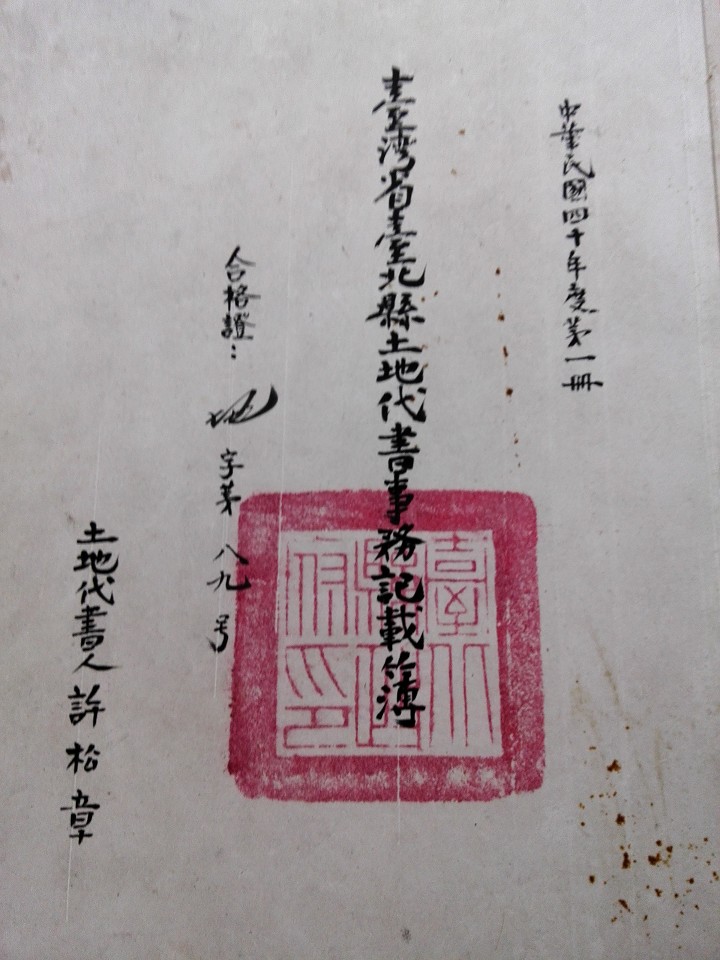 中華民國四十年度第一冊
臺灣省臺北縣土地代書事務記載簿
合格證：地字第八九号
土地代書人許松章
臺北
縣政
府印